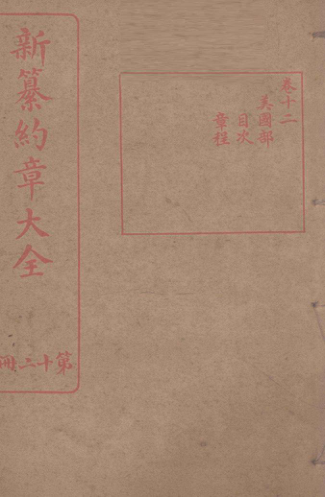 新纂約章大全
第十二冊
卷十二
美國部
目次
章程